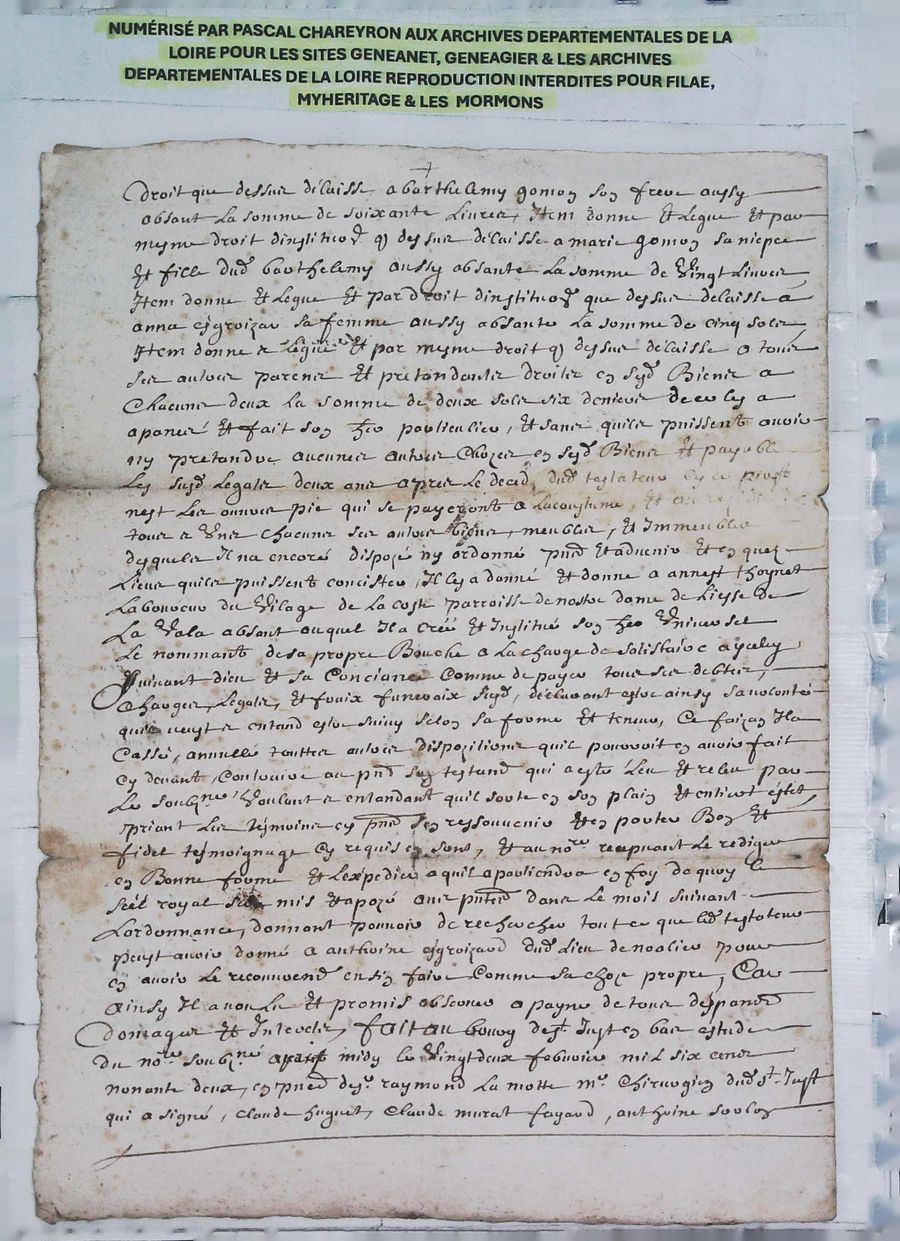 NUMÉRISÉ PAR PASCAL CHAREYRON AUX ARCHIVES DEPARTEMENTALES DE LA
LOIRE POUR LES SITES GENEANET, GENEAGIER & LES ARCHIVES
DEPARTEMENTALES DE LA LOIRE REPRODUCTION INTERDITES POUR FILAE,
MYHERITAGE & LES MORMONS
droit que dessus délaisse a barthelemy gomon son frere aussy
absant la somme de soixante livres, Item donne et legue et par
mesme droit dinstituon q dessus delaisse a marie gomon sa niepce
et fille dud barthelemy aussy absante la somme de vingt livres
Item donne et legue et par droit dinstituon que dessus delaisse a
anna sa femme aussy absante la somme de cinq sols
Item donne e legue et par mesme droit q dessus délaisse a tous
ses autres parens et pretandantz droitz en sesd Biens a
Chacuns deux la somme de deux sols six deniers
et fait son heo particulier, et sans quils puissent avoir
ny pretandre aucunes autres Chozes en sesd Biens et payable
les susd legatz deux ans apres le deced dud testateur
nest les œuvres pie qui se payeront a la coustume, et
tous e uns chacuns ses autres biens, meubles, et Immeubles
desquels il na encores dispozé ny ordonné pnd et advenir et en quez
lieux quils puissent concister, Il a donné et donne a annest thoynet
laboureur du vilage de la coste parroisse de nostre dame de
La Vala absant auquel Il a creé et Institué son heo universel
Le nommant de sa propre Bouche a la charge de satisfaire
suivant dieu et sa Conciance Comme de payer tous ses debtes,
Charges, legatz, et fraix funeraix susd, déclarant estre ainsy sa volonté
quil veust e entand estre suivy selon sa forme et teneur, Ce faizan Il a
Cassé, annullé touttes autres dispozitions quil pouvoit en avoir fait
Cy devant, Contraire au pnd son testand qui a esté leu et releu par
Le soubzne voulant e entandant quil sorte en son plain et entier effet,
priant les témoins cy pnd sen ressouvenir et en porter Bon et
fidel tesmoignage Cy requis en sont, et au nore recepvant le rediger
en Bonne forme et lexpedier a quil apartiendra en foy de quoy le
séel royal sera mis et apozé aux pntes dans le mois suivant
Lordonnance, donnant pouvoir de rechercher tout ce que led testateur
peust avoir donné a anthoine dud lieu de noalieu pour
en avoir le recouvrend en fin faire Comme sa choze propre, Car
ainsy Il a voulu et promis observer a payne de tous despans
domages et Interetz, fait au bourg dest Just en bas estude
du nore soubzne apres midy le vingt deux febvrier mil six cens
nonante deux, en pnce de sr raymond la motte mre Chirurgien dud st-Just
qui a signé, Claude huguet, Claude murat fayard, anthoine